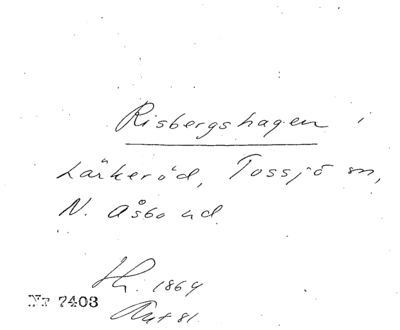 Risbergshagen i
Lärkeröd, Tossjö sn,
N. Åsbo hd
1864
Nr 7403
81.